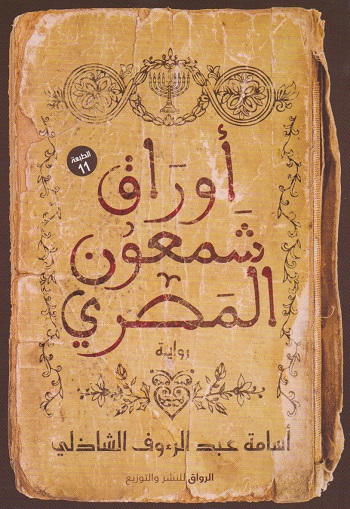 الطبعة
11
أوراق
شمعون
المصري
رواية
أسامة عبد الرءوف الشاذلي
الرواق للنشر والتوزيع